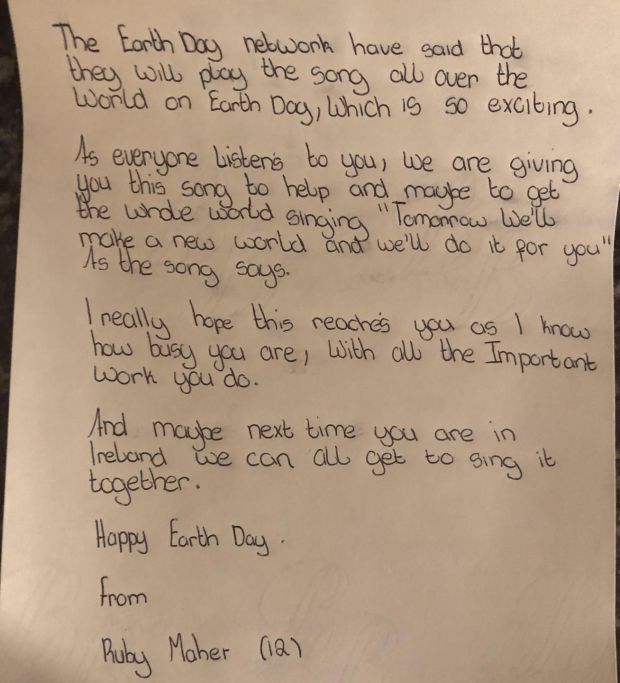 The Earth Day network have said that
they will play the song all over the
World on Earth Day, Which is so exciting.
As everyone Listens to you, We are giving
you this song to help and maybe to get
the whole world singing "Tomorrow We'll
make a new world and we'll do it for you"
As the song says.
I really hope this reaches you as I know
how busy you are, With all the Important
Work you do.
And maybe next time you are in
Ireland we can all get to sing it
together.
Happy Earth Day.
from
Ruby Maher (12)